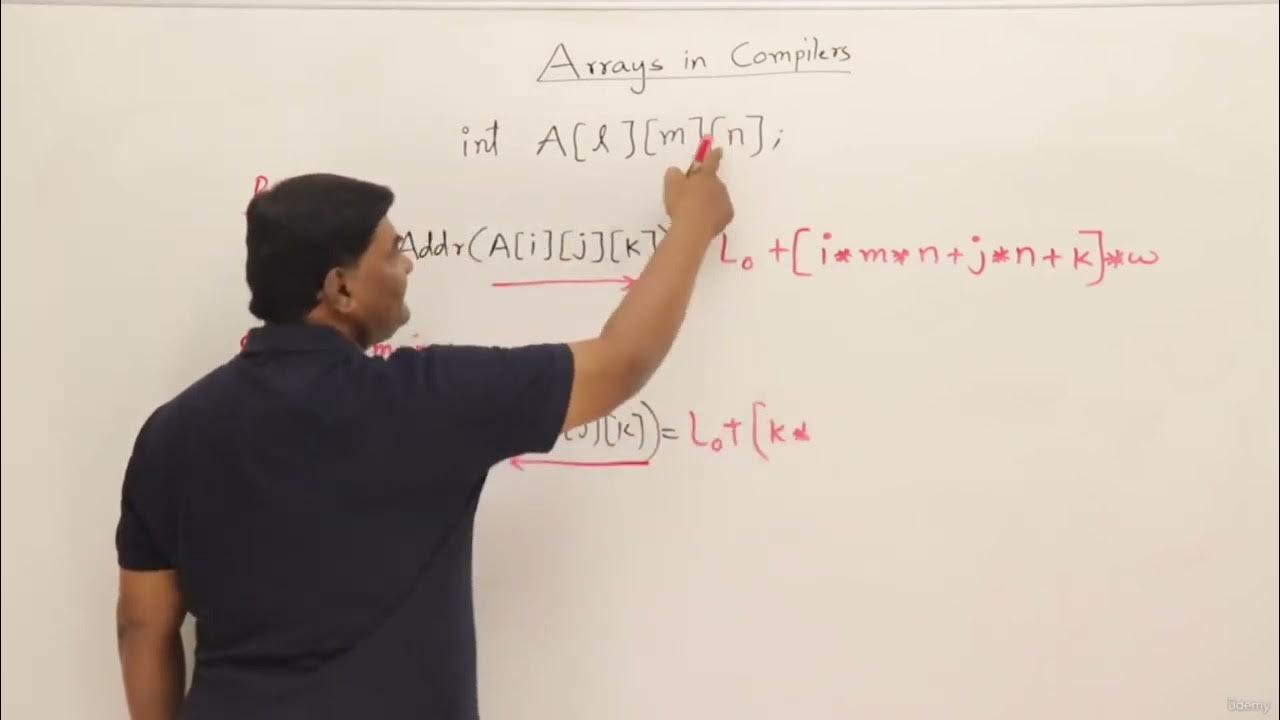 Arrays in Compilers
int A[l][m][n];
Addr(A[i][j][k]) L₀ + [i*m*n+j*n+k]*w
[j][k])= L₀+[k*
ûdemy